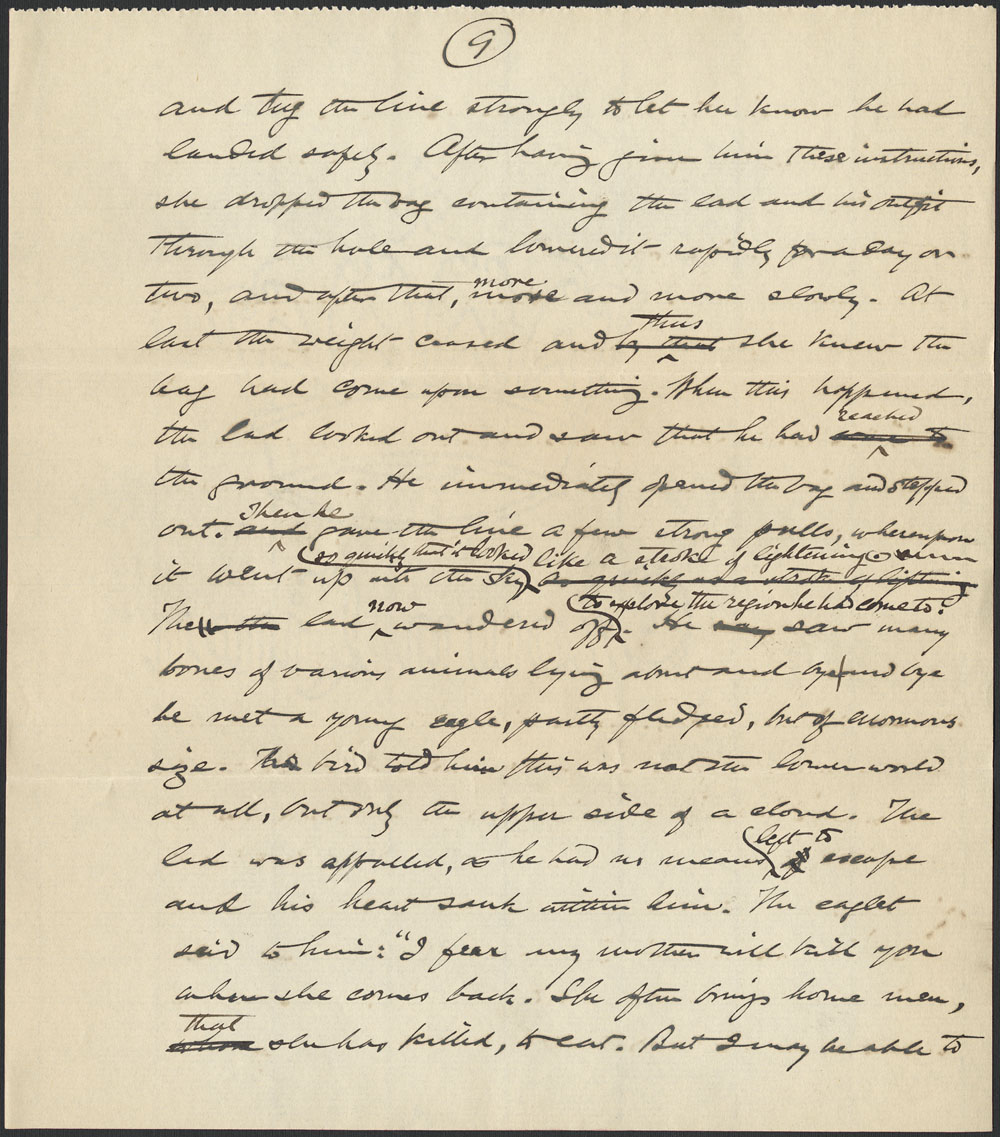 9
and tug the line strongly to let her know he had
landed safely. After having given him these instructions,
she dropped the bag containing the lad and his outfit
through the hole and lowered it rapidly for a day or
two, and after that, more
more and more slowly. At
thus
last the weight ceased and by that she knew the
bag had come upon something. When this happened,
reached
the lad looked out and saw that he had came to
the ground. He immediately opened the bag and stepped
Then he
out. and gave the line a few strong pulls, whereupon
(so quickly that it looked like a stroke of lightening
it went up into the sky so quickly as a stroke of lightning
now (to explore the region he had come to.
The lad wandered off. He say saw many
bones of various animals lying about and bye and bye
he met a young eagle, partly fledged, but of enormous
size. The bird told him this was not the lower world
at all, but only the upper side of a cloud. The
left to
lad was appalled, as he had no means of escape
and his heart sank within him. The eaglet
said to him: "I fear my mother will kill you
when she comes back. She often brings home men,
that
whom she has killed, to eat. But I may be able to